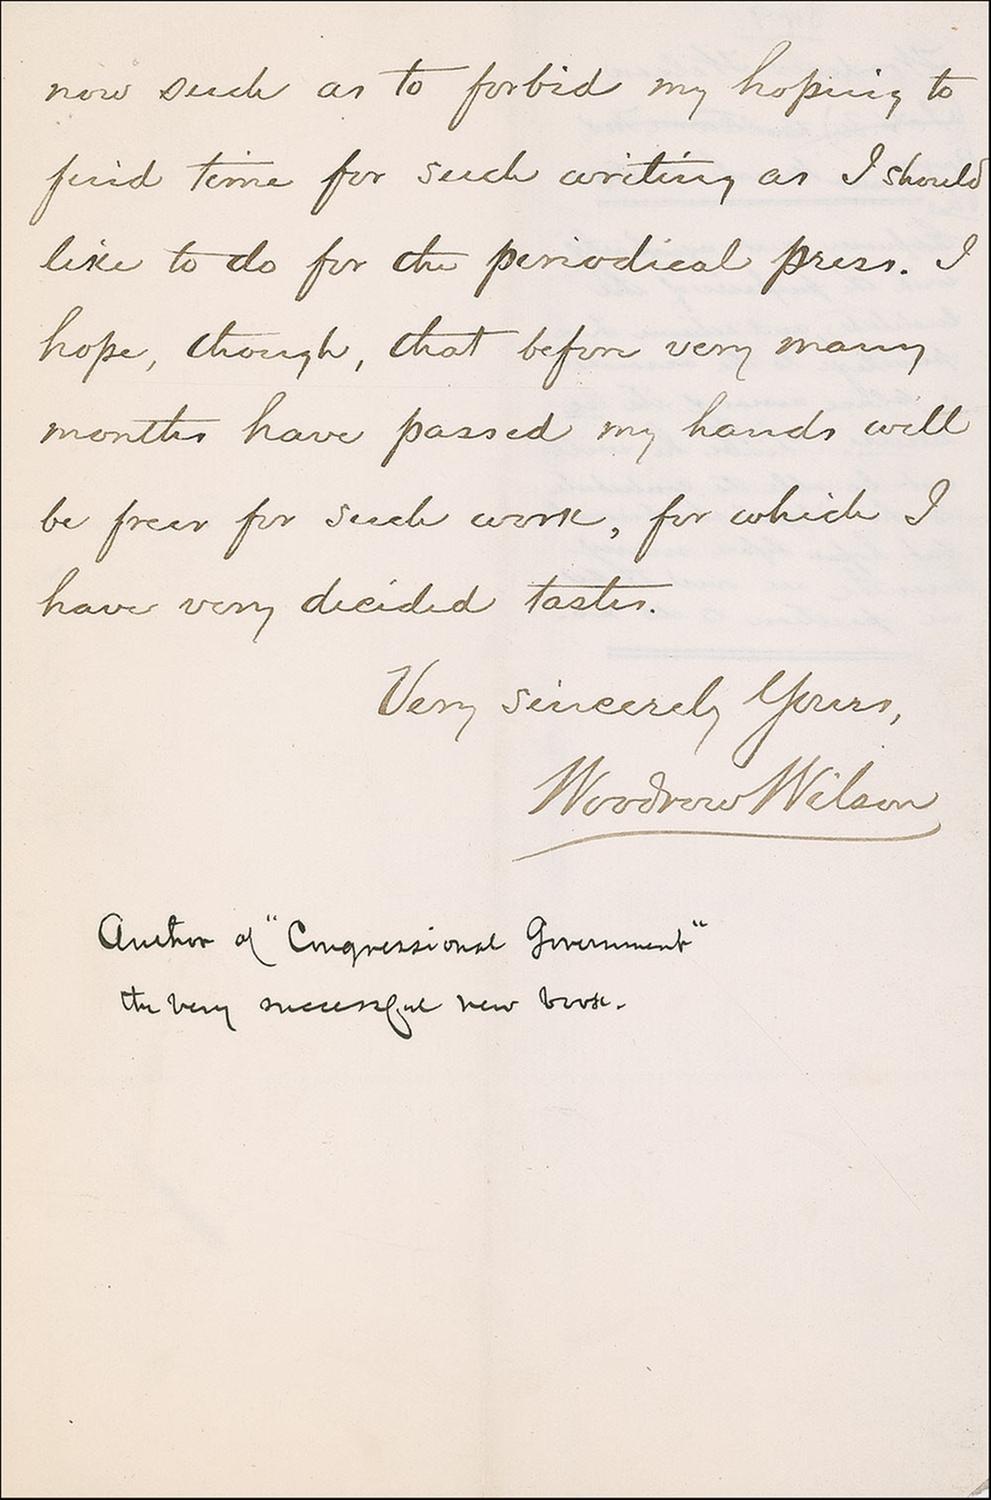 now such as to forbid my hoping to
find time for such writing as I should
like to do for the periodical press. I
hope, though, that before very many
months have passed my hands will
be freer for such work, for which I
have very decided tastes.
Very sincerely Yours,
Woodrow Wilson
Author of "Congressional Government"
the very successful new book.